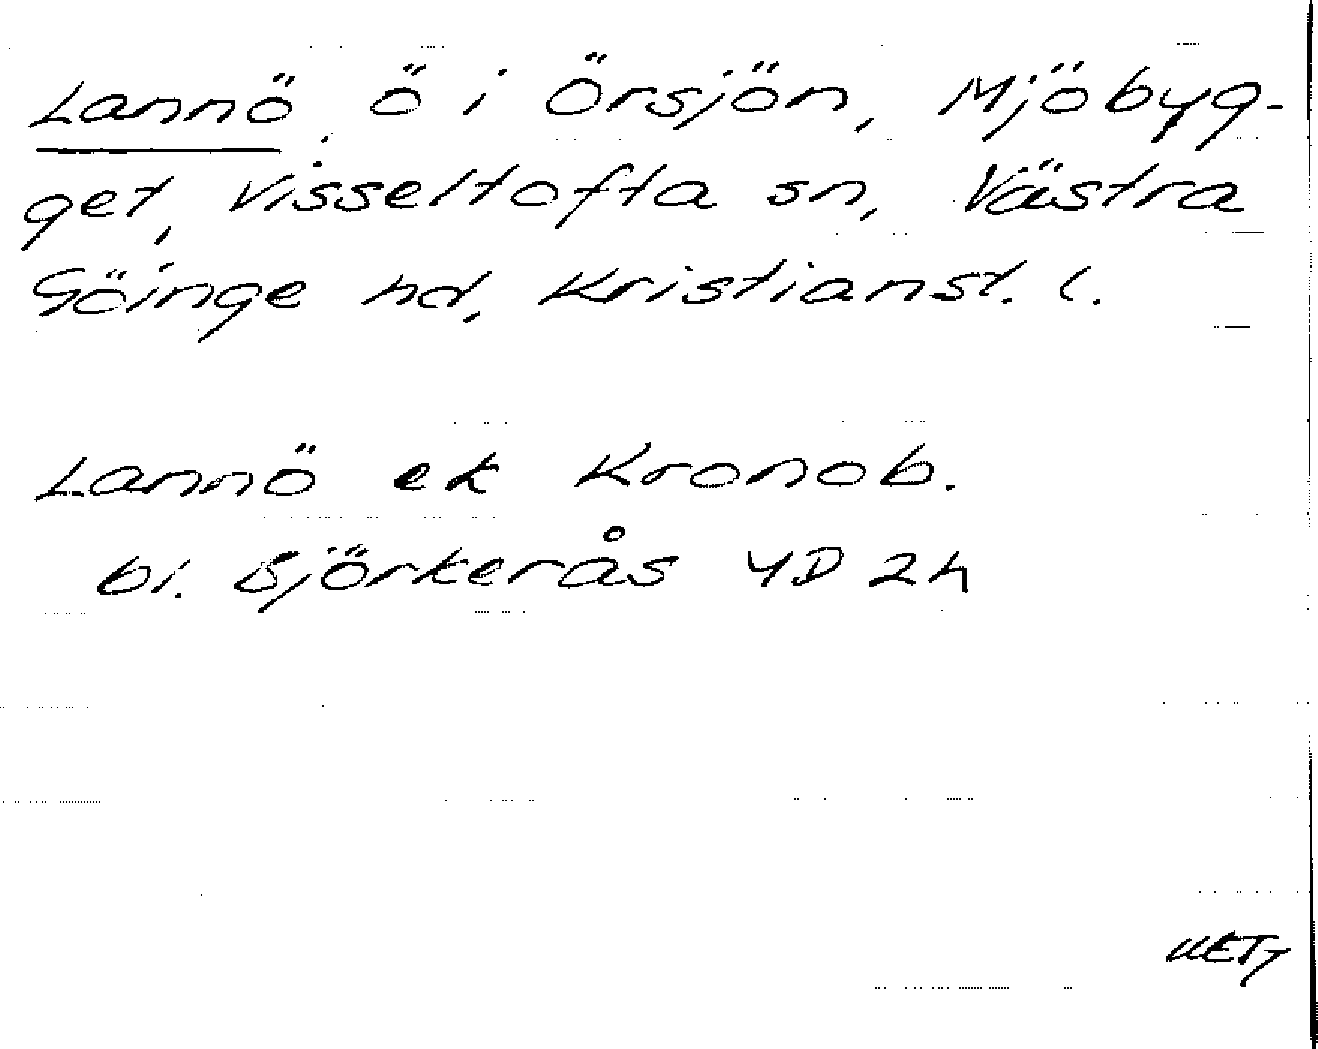 Lannö, ö i Örsjön, Mjöbyg-
get, Visseltofta sn, Västra
Göinge hd, Kristianst. l.
Lannö ek Kronob.
bl. Björkerås 4D 2h